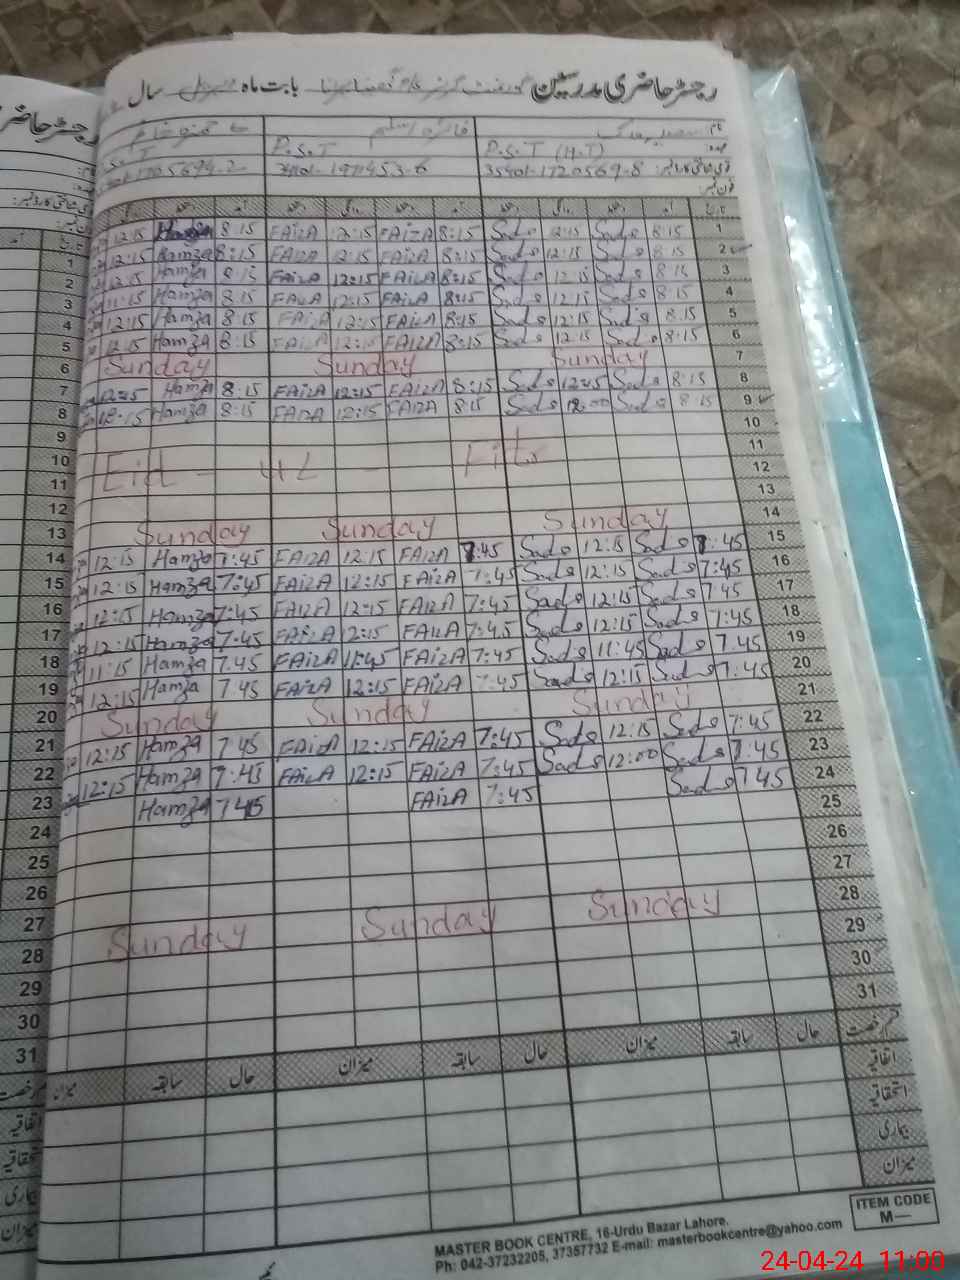 رجسٹر حاضری مدرسین بابت ماہ سال
نام
P.S.T (H.T) P.S.T P.S.T
قومی شناختی کارڈ نمبر: 35401-1720569-8
فون نمبر:
1 8:15 Sads 12:15 Sads 8:15 FAizA 12:15 FAizA 8:15 Hamza 12:15
2 8:15 Sads 12:15 Sads 8:15 FAizA 12:15 FAizA 8:15 Hamza 12:15
3 8:15 Sads 12:15 Sads 8:15 FAizA 12:15 FAizA 8:15 Hamza 12:15
4 8:15 Sads 12:15 Sads 8:15 FAizA 12:15 FAizA 8:15 Hamza 11:15
5 8:15 Sads 12:15 Sads 8:15 FAizA 12:15 FAizA 8:15 Hamza 12:15
6 8:15 Sads 12:15 Sads 8:15 FAizA 12:15 FAizA 8:15 Hamza 12:15
7 Sunday Sunday Sunday
8 8:15 Sads 12:45 Sads 8:15 FAizA 12:15 FAizA 8:15 Hamza
9 8:15 Sads 12:00 Sads 8:15 FAizA 12:15 FAizA 8:15 Hamza
10
11
12 Eid - ul - Fitr
13
14 Sunday Sunday Sunday
15 7:45 Sads 12:15 Sads 7:45 FAizA 12:15 FAizA 7:45 Hamza 12:15
16 7:45 Sads 12:15 Sads 7:45 FAizA 12:15 FAizA 7:45 Hamza 12:15
17 7:45 Sads 12:15 Sads 7:45 FAizA 12:15 FAizA 7:45 Hamza 12:15
18 7:45 Sads 12:15 Sads 7:45 FAizA 12:15 FAizA 7:45 Hamza 12:15
19 7:45 Sads 11:45 Sads 7:45 FAizA 11:45 FAizA 7:45 Hamza 11:15
20 7:45 Sads 12:15 Sads 7:45 FAizA 12:15 FAizA 7:45 Hamza 12:15
21 Sunday Sunday Sunday
22 7:45 Sads 12:15 Sads 7:45 FAizA 12:15 FAizA 7:45 Hamza 12:15
23 7:45 Sads 12:00 Sads 7:45 FAizA 12:15 FAizA 7:45 Hamza 12:15
24 7:45 Sads 7:45 FAizA 7:45 Hamza
25
26
27
28 Sunday Sunday Sunday
29
30
31
قسم رخصت حال سابقہ میزان حال سابقہ میزان حال سابقہ میزان
اتفاقیہ
استحقاقیہ
بیماری
میزان
ITEM CODE
M—
MASTER BOOK CENTRE, 16-Urdu Bazar Lahore.
Ph: 042-37232205, 37357732 E-mail: masterbookcentre@yahoo.com
24-04-24 11:00